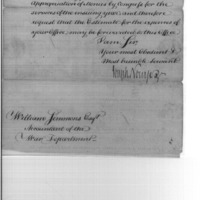 Appropriation of Monies by Congress for the
services of the ensuing year, and therefore
request that the Estimate for the expenses of
your Office, may be forwarded to this Office.
I am Sir
Your most Obedient &
Most humble Servant
William Simmons Esqr
Accountant of the
War Department